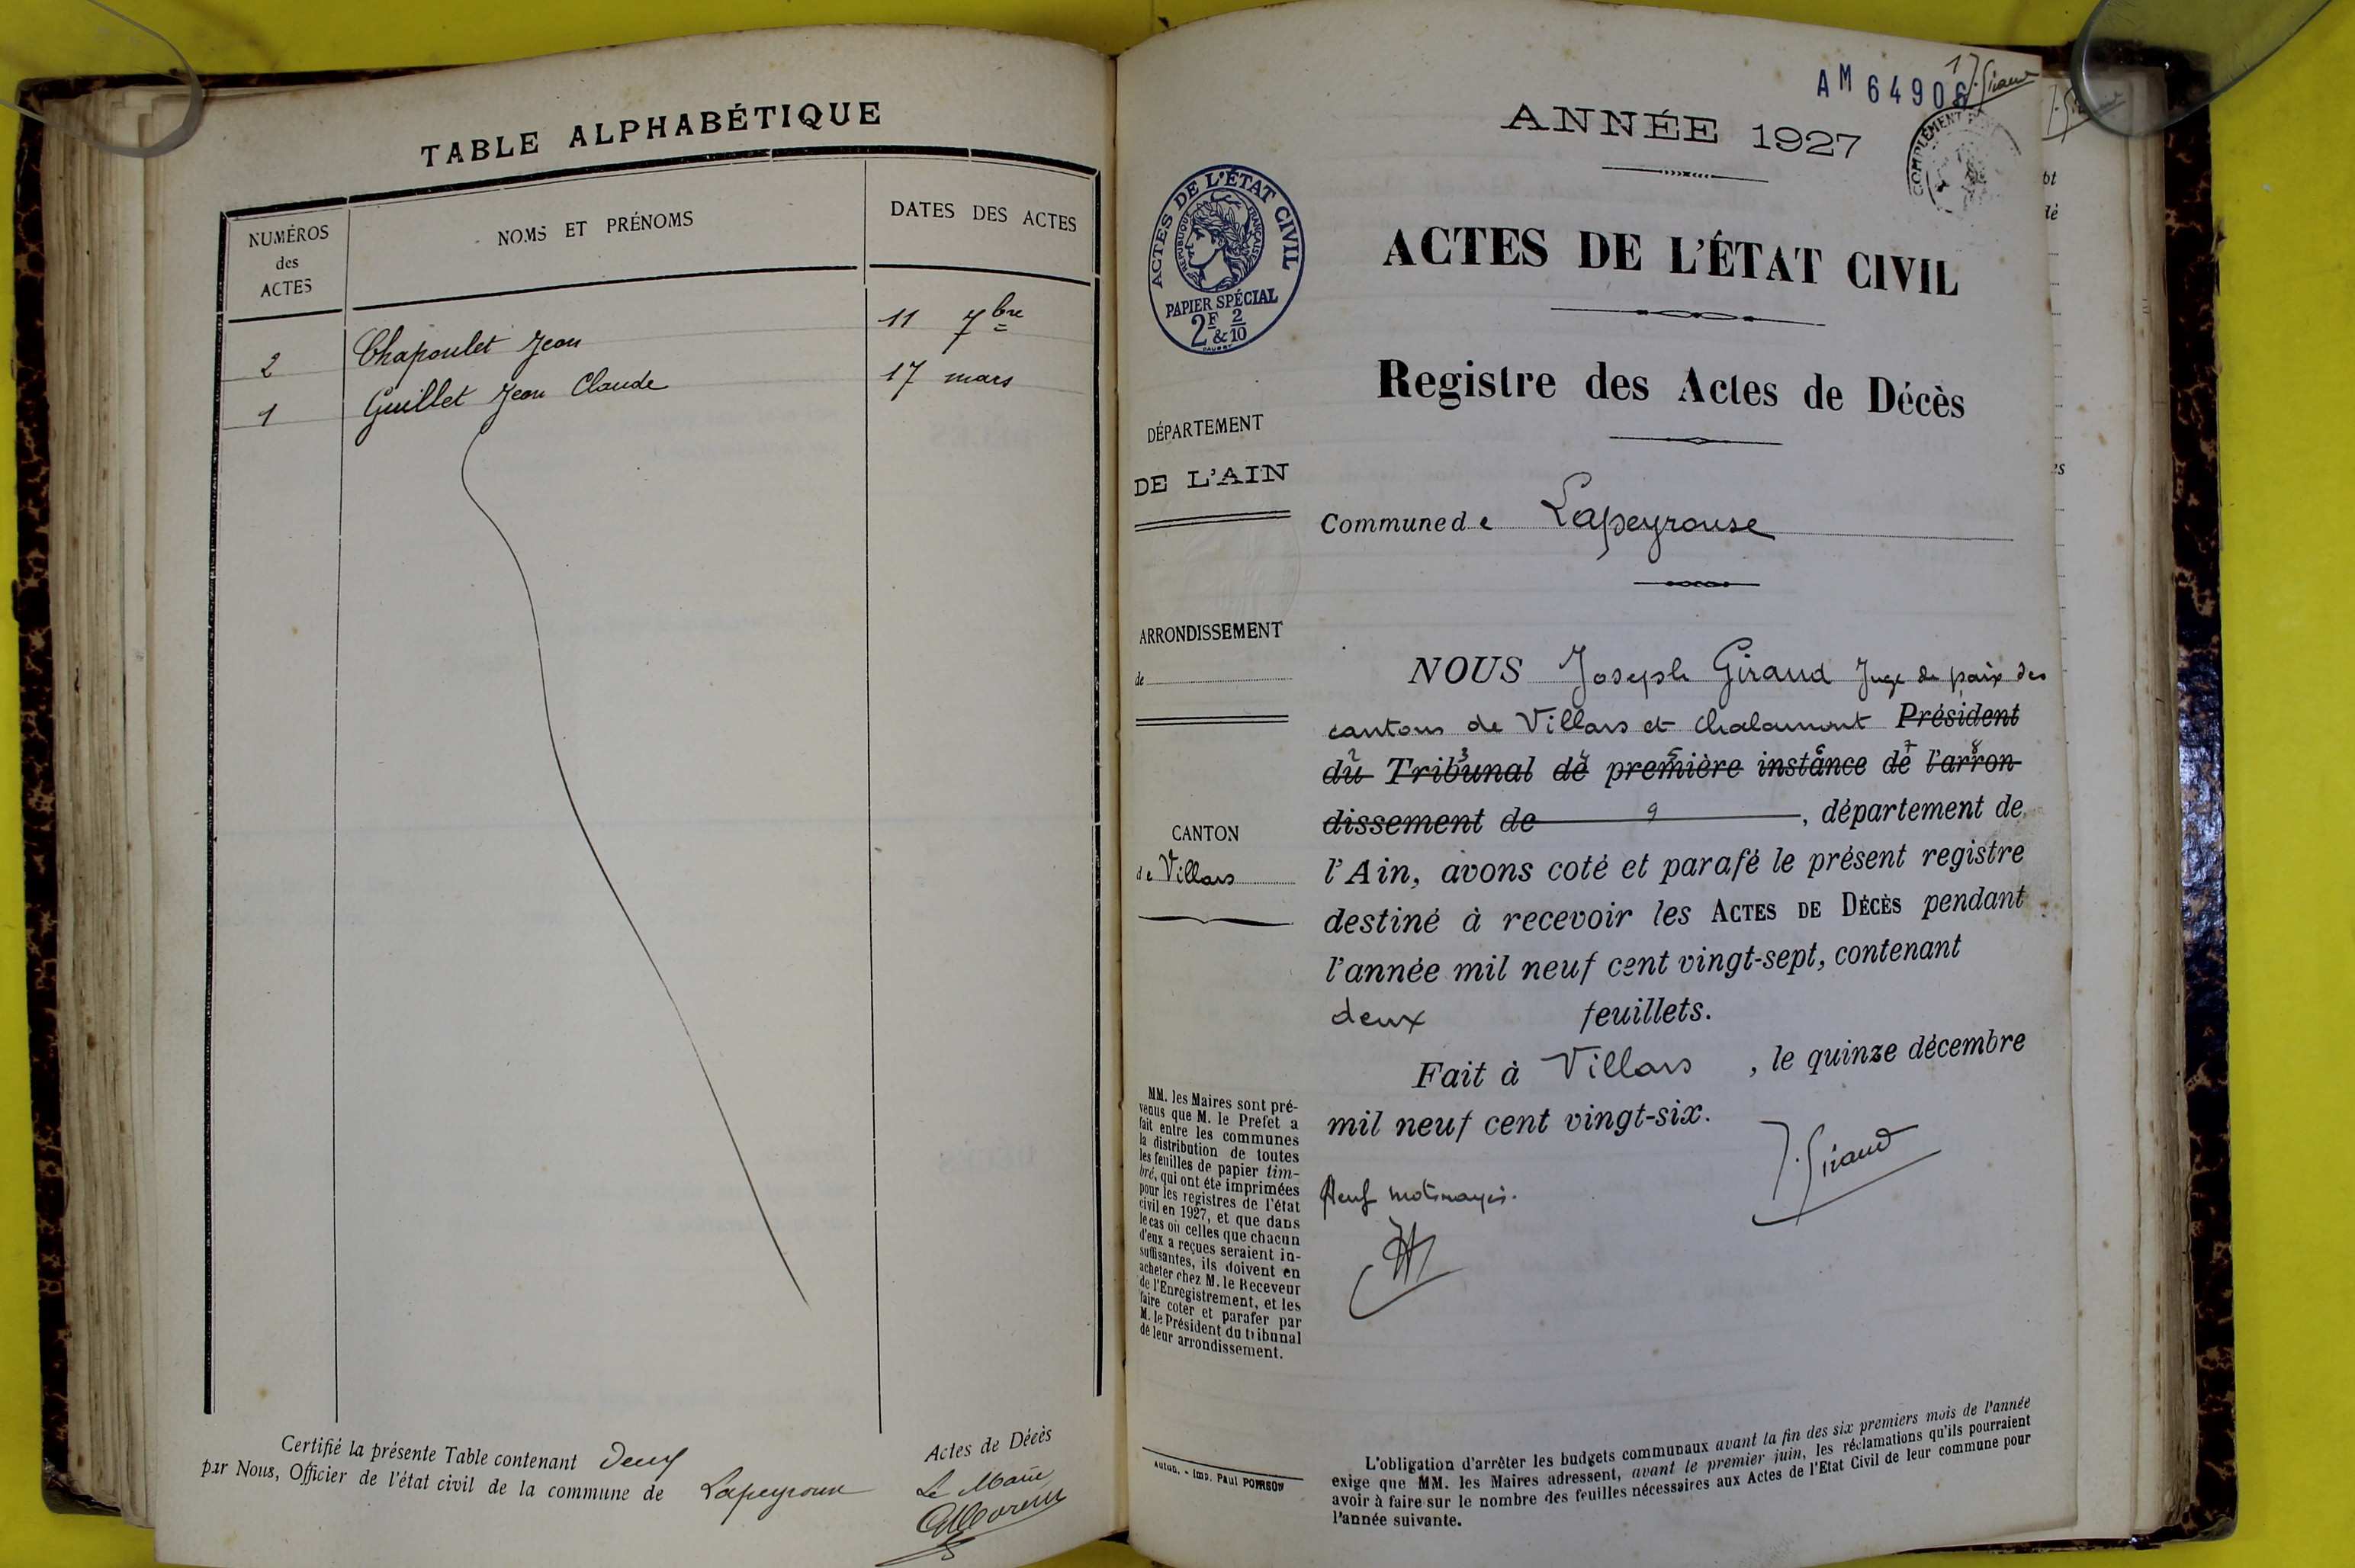 TABLE ALPHABÉTIQUE
NUMÉROS
des
ACTES
NOMS ET PRÉNOMS
DATES DES ACTES
2 Chapoulet Jean 11 7bre
1 Guillet Jean Claude 17 mars
Certifié la présente Table contenant Deux Actes de Décès
par Nous, Officier de l'état civil de la commune de Lapeyrouse
Le Maire
1
J. Giraud
AM 64906
ANNÉE 1927
COMPLÉMENT
ACTES DE L'ÉTAT CIVIL
RÉPUBLIQUE FRANÇAISE
PAPIER SPÉCIAL
2F & 2/10
ACTES DE L'ÉTAT CIVIL
Registre des Actes de Décès
DÉPARTEMENT
DE L'AIN
Commune de Lapeyrouse
ARRONDISSEMENT
de
CANTON
de Villars
NOUS Joseph Giraud Juge de paix des
cantons de Villars et Chalamont Président
du Tribunal de première instance de l'arron
dissement de 9 , département de
l'Ain, avons coté et parafé le présent registre
destiné à recevoir les ACTES DE DÉCÈS pendant
l'année mil neuf cent vingt-sept, contenant
deux feuillets.
Fait à Villars , le quinze décembre
mil neuf cent vingt-six.
J. Giraud
Neuf mots rayés.
MM. les Maires sont pré-
venus que M. le Préfet a
fait entre les communes
la distribution de toutes
les feuilles de papier tim-
bré, qui ont été imprimées
pour les registres de l'état
civil en 1927, et que dans
le cas où celles que chacun
d'eux a reçues seraient in-
suffisantes, ils doivent en
acheter chez M. le Receveur
de l'Enregistrement, et les
faire coter et parafer par
M. le Président du tribunal
de leur arrondissement.
Autun. - Imp. Paul POIRSON
L'obligation d'arrêter les budgets communaux avant la fin des six premiers mois de l'année
exige que MM. les Maires adressent, avant le premier juin, les réclamations qu'ils pourraient
avoir à faire sur le nombre des feuilles nécessaires aux Actes de l'Etat Civil de leur commune pour
l'année suivante.